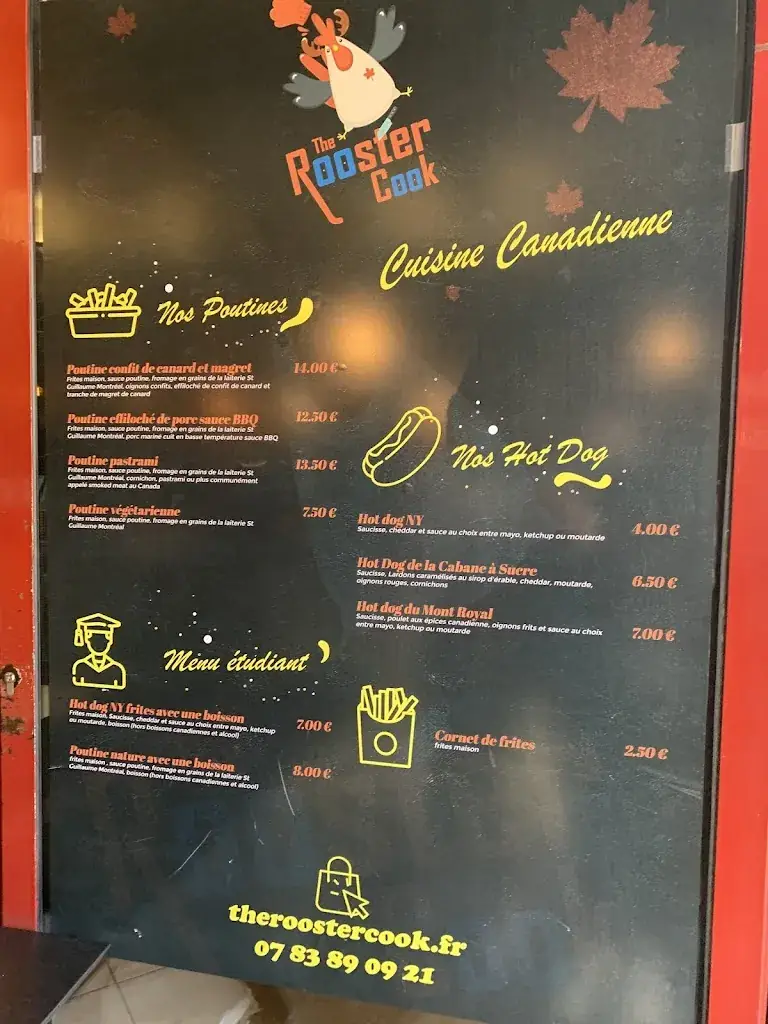 The
Rooster
Cook
Cuisine Canadienne
Nos Poutines
Poutine confit de canard et magret 14.00 €
Frites maison, sauce poutine, fromage en grains de la laiterie St
Guillaume Montréal, oignons confits, effiloché de confit de canard et
tranche de magret de canard
Poutine effiloché de porc sauce BBQ 12.50 €
Frites maison, sauce poutine, fromage en grains de la laiterie St
Guillaume Montréal, porc mariné cuit en basse température sauce BBQ
Poutine pastrami 13.50 €
Frites maison, sauce poutine, fromage en grains de la laiterie St
Guillaume Montréal, cornichon, pastrami ou plus communément
appelé smoked meat au Canada
Poutine végétarienne 7.50 €
Frites maison, sauce poutine, fromage en grains de la laiterie St
Guillaume Montréal
Nos Hot Dog
Hot dog NY 4.00 €
Saucisse, cheddar et sauce au choix entre mayo, ketchup ou moutarde
Hot Dog de la Cabane à Sucre 6.50 €
Saucisse, Lardons caramélisés au sirop d'érable, cheddar, moutarde,
oignons rouges, cornichons
Hot dog du Mont Royal 7.00 €
Saucisse, poulet aux épices canadienne, oignons frits et sauce au choix
entre mayo, ketchup ou moutarde
Menu étudiant
Hot dog NY frites avec une boisson 7.00 €
Frites maison, Saucisse, cheddar et sauce au choix entre mayo, ketchup
ou moutarde, boisson (hors boissons canadiennes et alcool)
Poutine nature avec une boisson 8.00 €
frites maison , sauce poutine, fromage en grains de la laiterie St
Guillaume Montréal, boisson (hors boissons canadiennes et alcool)
Cornet de frites 2.50 €
frites maison
theroostercook.fr
07 83 89 09 21